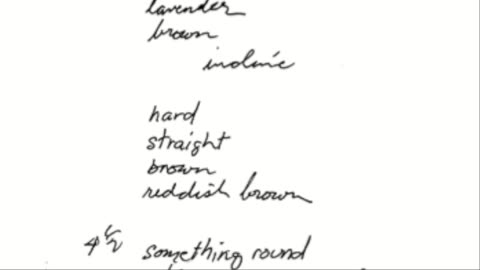 lavender
brown
hard
straight
brown
reddish brown
4 1/2 something round